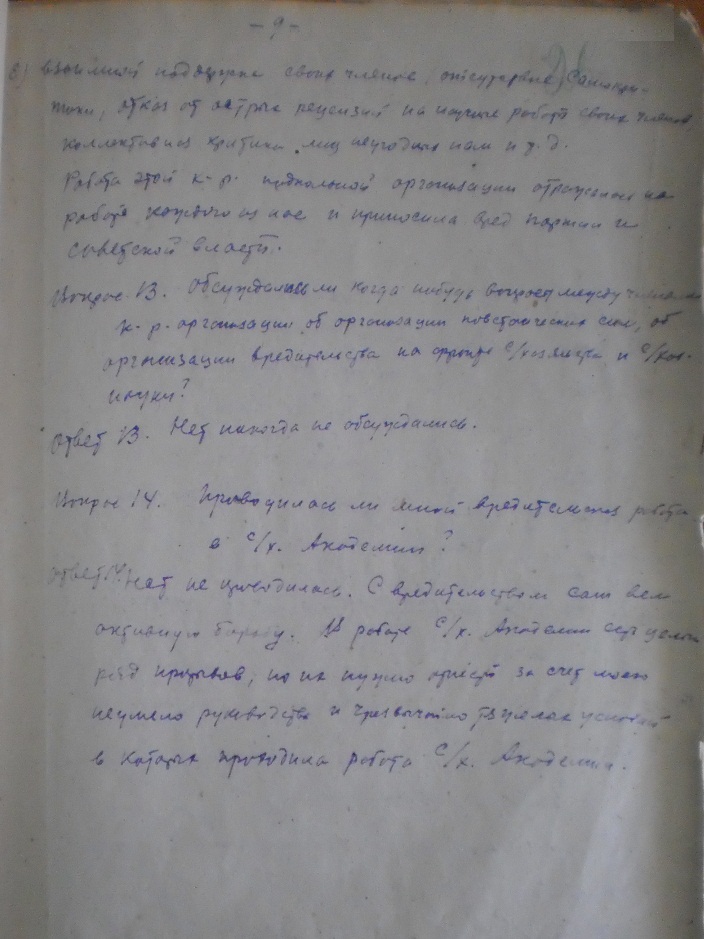 - 9 -
в) взаимная поддержка своих членов, отсутствие самокри-
тики, отказ от острых рецензий на научные работы своих членов,
коллективная критика лиц неугодных нам и т.д.
Работа этой к-р. подпольной организации отражалась на
работе каждого из нас и приносила вред партии и
советской власти.
Вопрос 13. Обсуждались ли когда нибудь вопросы между членами
к-р. организации об организации повстанческих сил, об
организации вредительства на фронте с/хозяйства и с/хоз-
науки?
Ответ 13. Нет никогда не обсуждались.
Вопрос 14. Проводилась ли вредительская работа
в с/х. Академии?
Ответ 14. Нет не проводилась. С вредительством сам вел
активную борьбу. В работе с/х. Академии есть целый
ряд прорывов, но их нужно отнести за счет моего
неумелого руководства и чрезвычайно тяжелых условий
в которых проводила работа с/х. Академии.